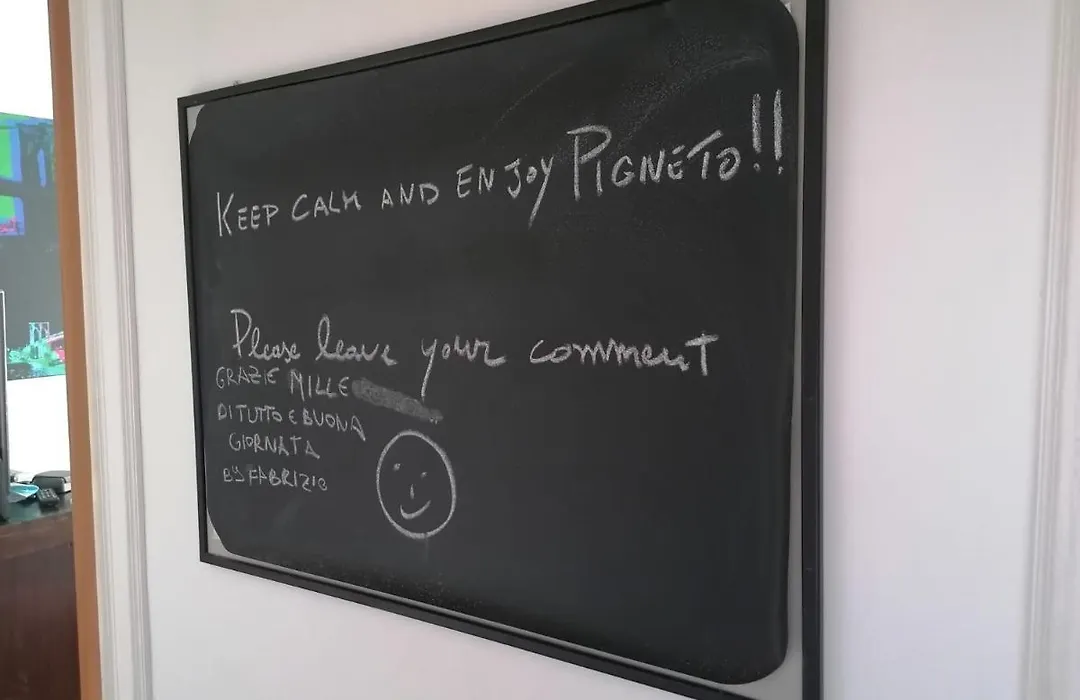 KEEP CALM AND ENJOY PIGNETO!!
Please leave your comment
GRAZIE MILLE
DI TUTTO E BUONA
GIORNATA
BY FABRIZIO